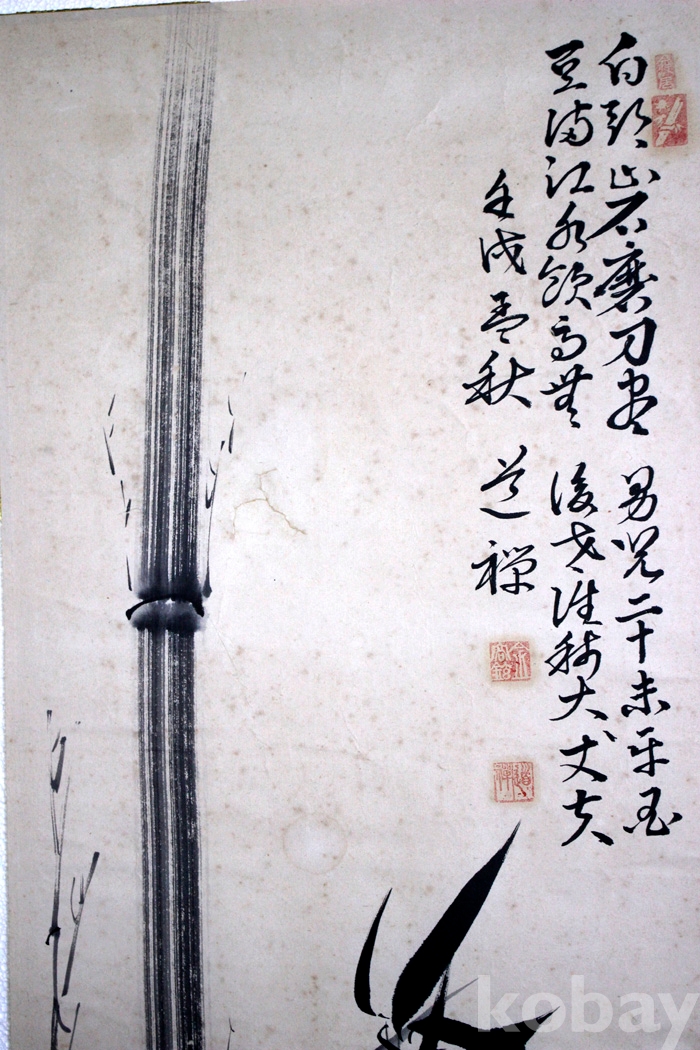 白頭山石磨刀盡 男兒二十未平國
豆滿江水飲馬無 後世誰稱大丈夫
壬戌孟秋 道禪
道禪
kobay